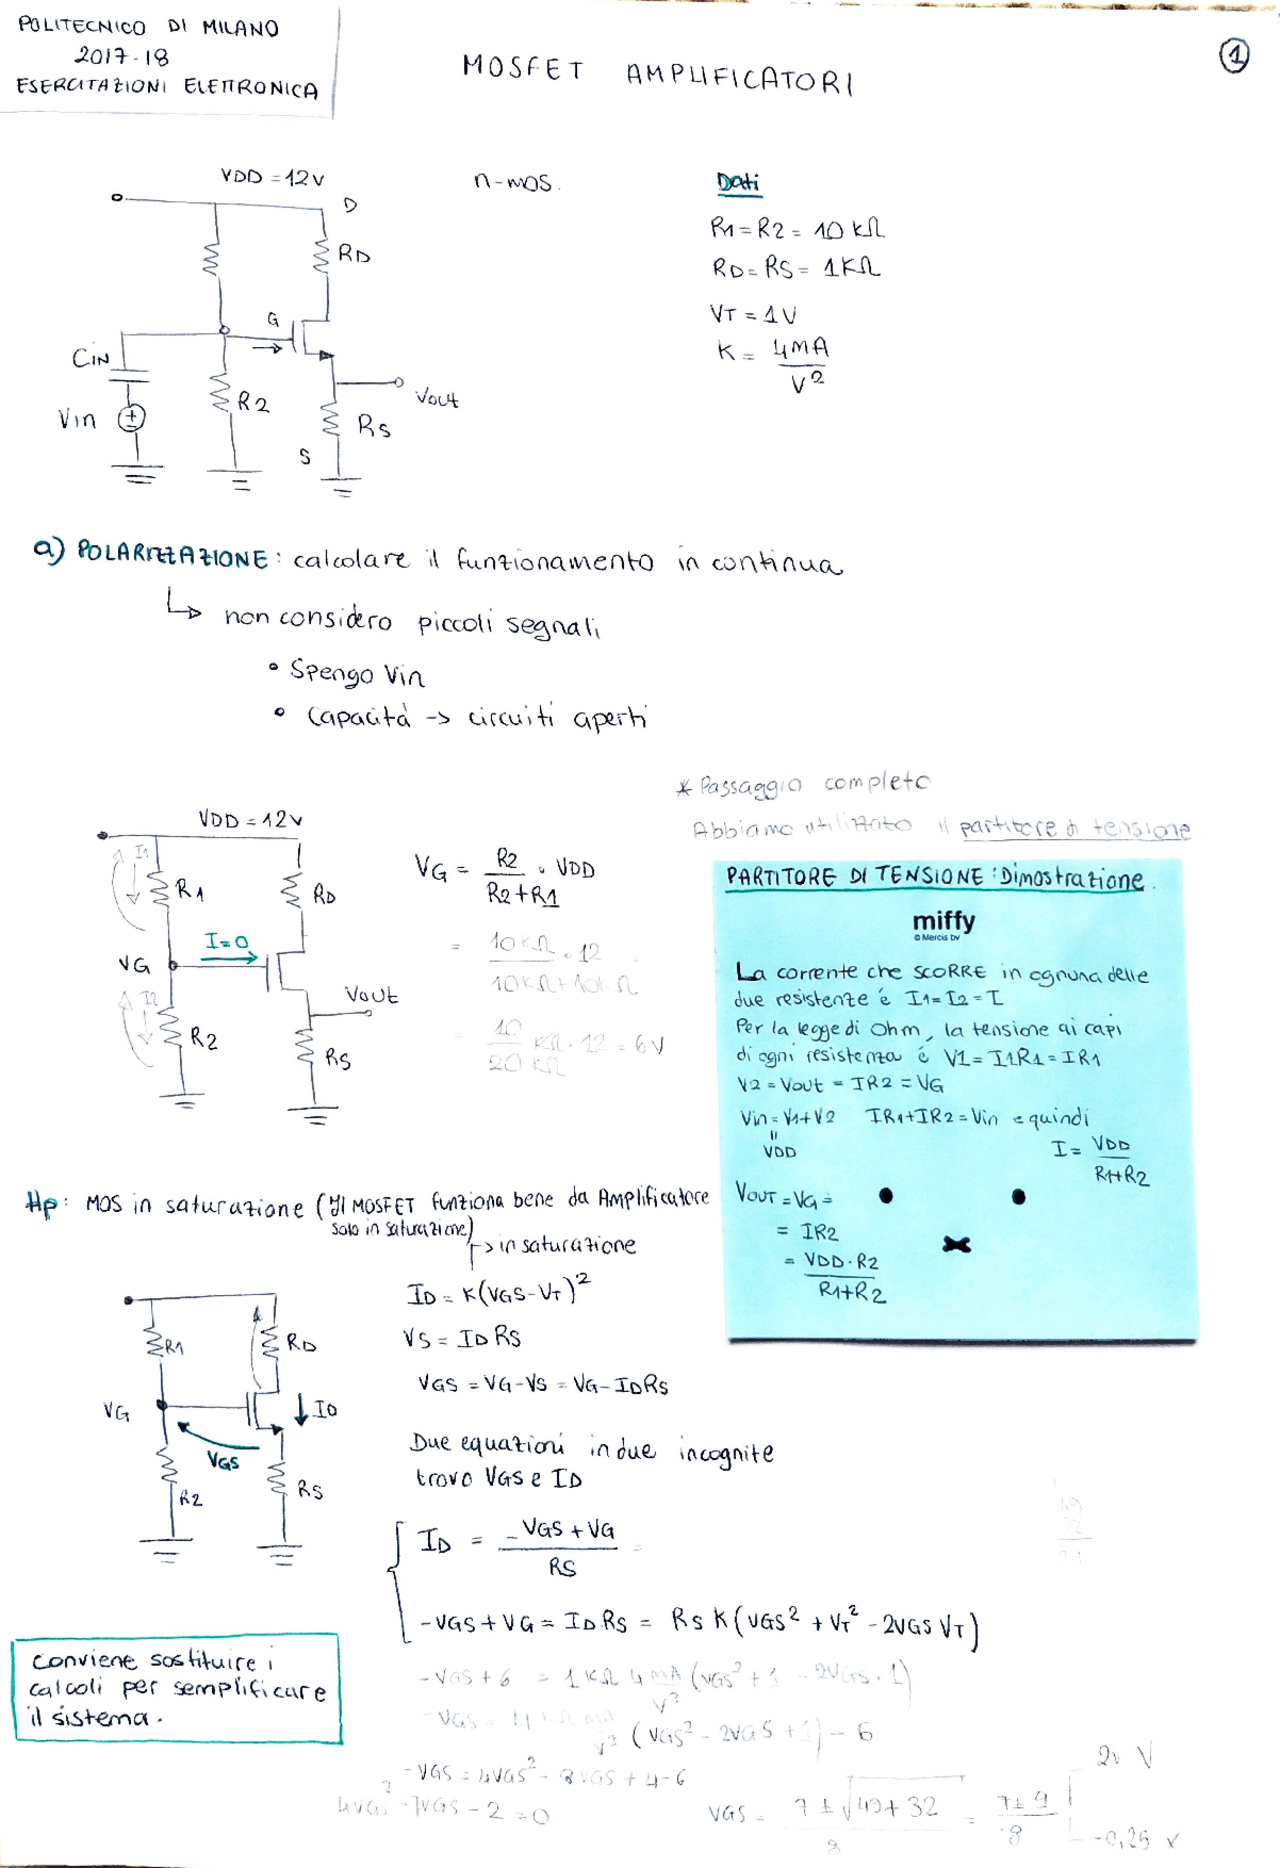 POLITECNICO DI MILANO
2017-18
ESERCITAZIONI ELETTRONICA
MOSFET AMPLIFICATORI
1
VDD = 12V
n-mos.
Dati
D
RD
R1 = R2 = 10 KΩ
RD = RS = 1KΩ
VT = 1V
K = 4MA
V²
G
CIN
Vin
R2
Vout
RS
S
a) POLARIZZAZIONE : calcolare il funzionamento in continua
↳ non considero piccoli segnali
• Spengo Vin
• Capacità -> circuiti aperti
* Passaggio completo
Abbiamo utilizzato il partitore di tensione
VDD = 12V
I1
R1
RD
I=0
VG
I2
R2
Vout
RS
VG = R2 . VDD
R2+R1
= 10KΩ . 12
10KΩ+10KΩ
= 10 KΩ . 12 = 6V
20 KΩ
PARTITORE DI TENSIONE : Dimostrazione.
miffy
© Mercis bv
La corrente che SCORRE in ognuna delle
due resistenze é I1=I2=I
Per la legge di Ohm, la tensione ai capi
di ogni resistenza é V1 = I1R1 = IR1
V2 = Vout = IR2 = VG
Vin = V1+V2 IR1+IR2=Vin e quindi
VDD
I = VDD
R1+R2
VOUT = VG =
= IR2
= VDD.R2
R1+R2
Hp: MOS in saturazione (Il MOSFET funziona bene da Amplificatore
solo in saturazione)
-> in saturazione
ID = K(VGS-VT)²
VS = ID RS
VGS = VG-VS = VG-IDRS
R1
RD
VG
ID
VGS
R2
RS
Due equazioni in due incognite
trovo VGS e ID
ID = -VGS + VG =
RS
-VGS + VG = IDRS = RS K (VGS² + VT² - 2VGS VT)
Conviene sostituire i
calcoli per semplificare
il sistema.
-VGS + 6 = 1KΩ 4 MA (VGS² + 1 - 2VGS . 1)
V²
(VGS² - 2VGS + 1) - 6
-VGS = 4VGS² - 8VGS + 4-6
4VGS² - 7VGS - 2 = 0
VGS = 7 ± √49+32 = 7±9
8 8
2V V
-0,25 x